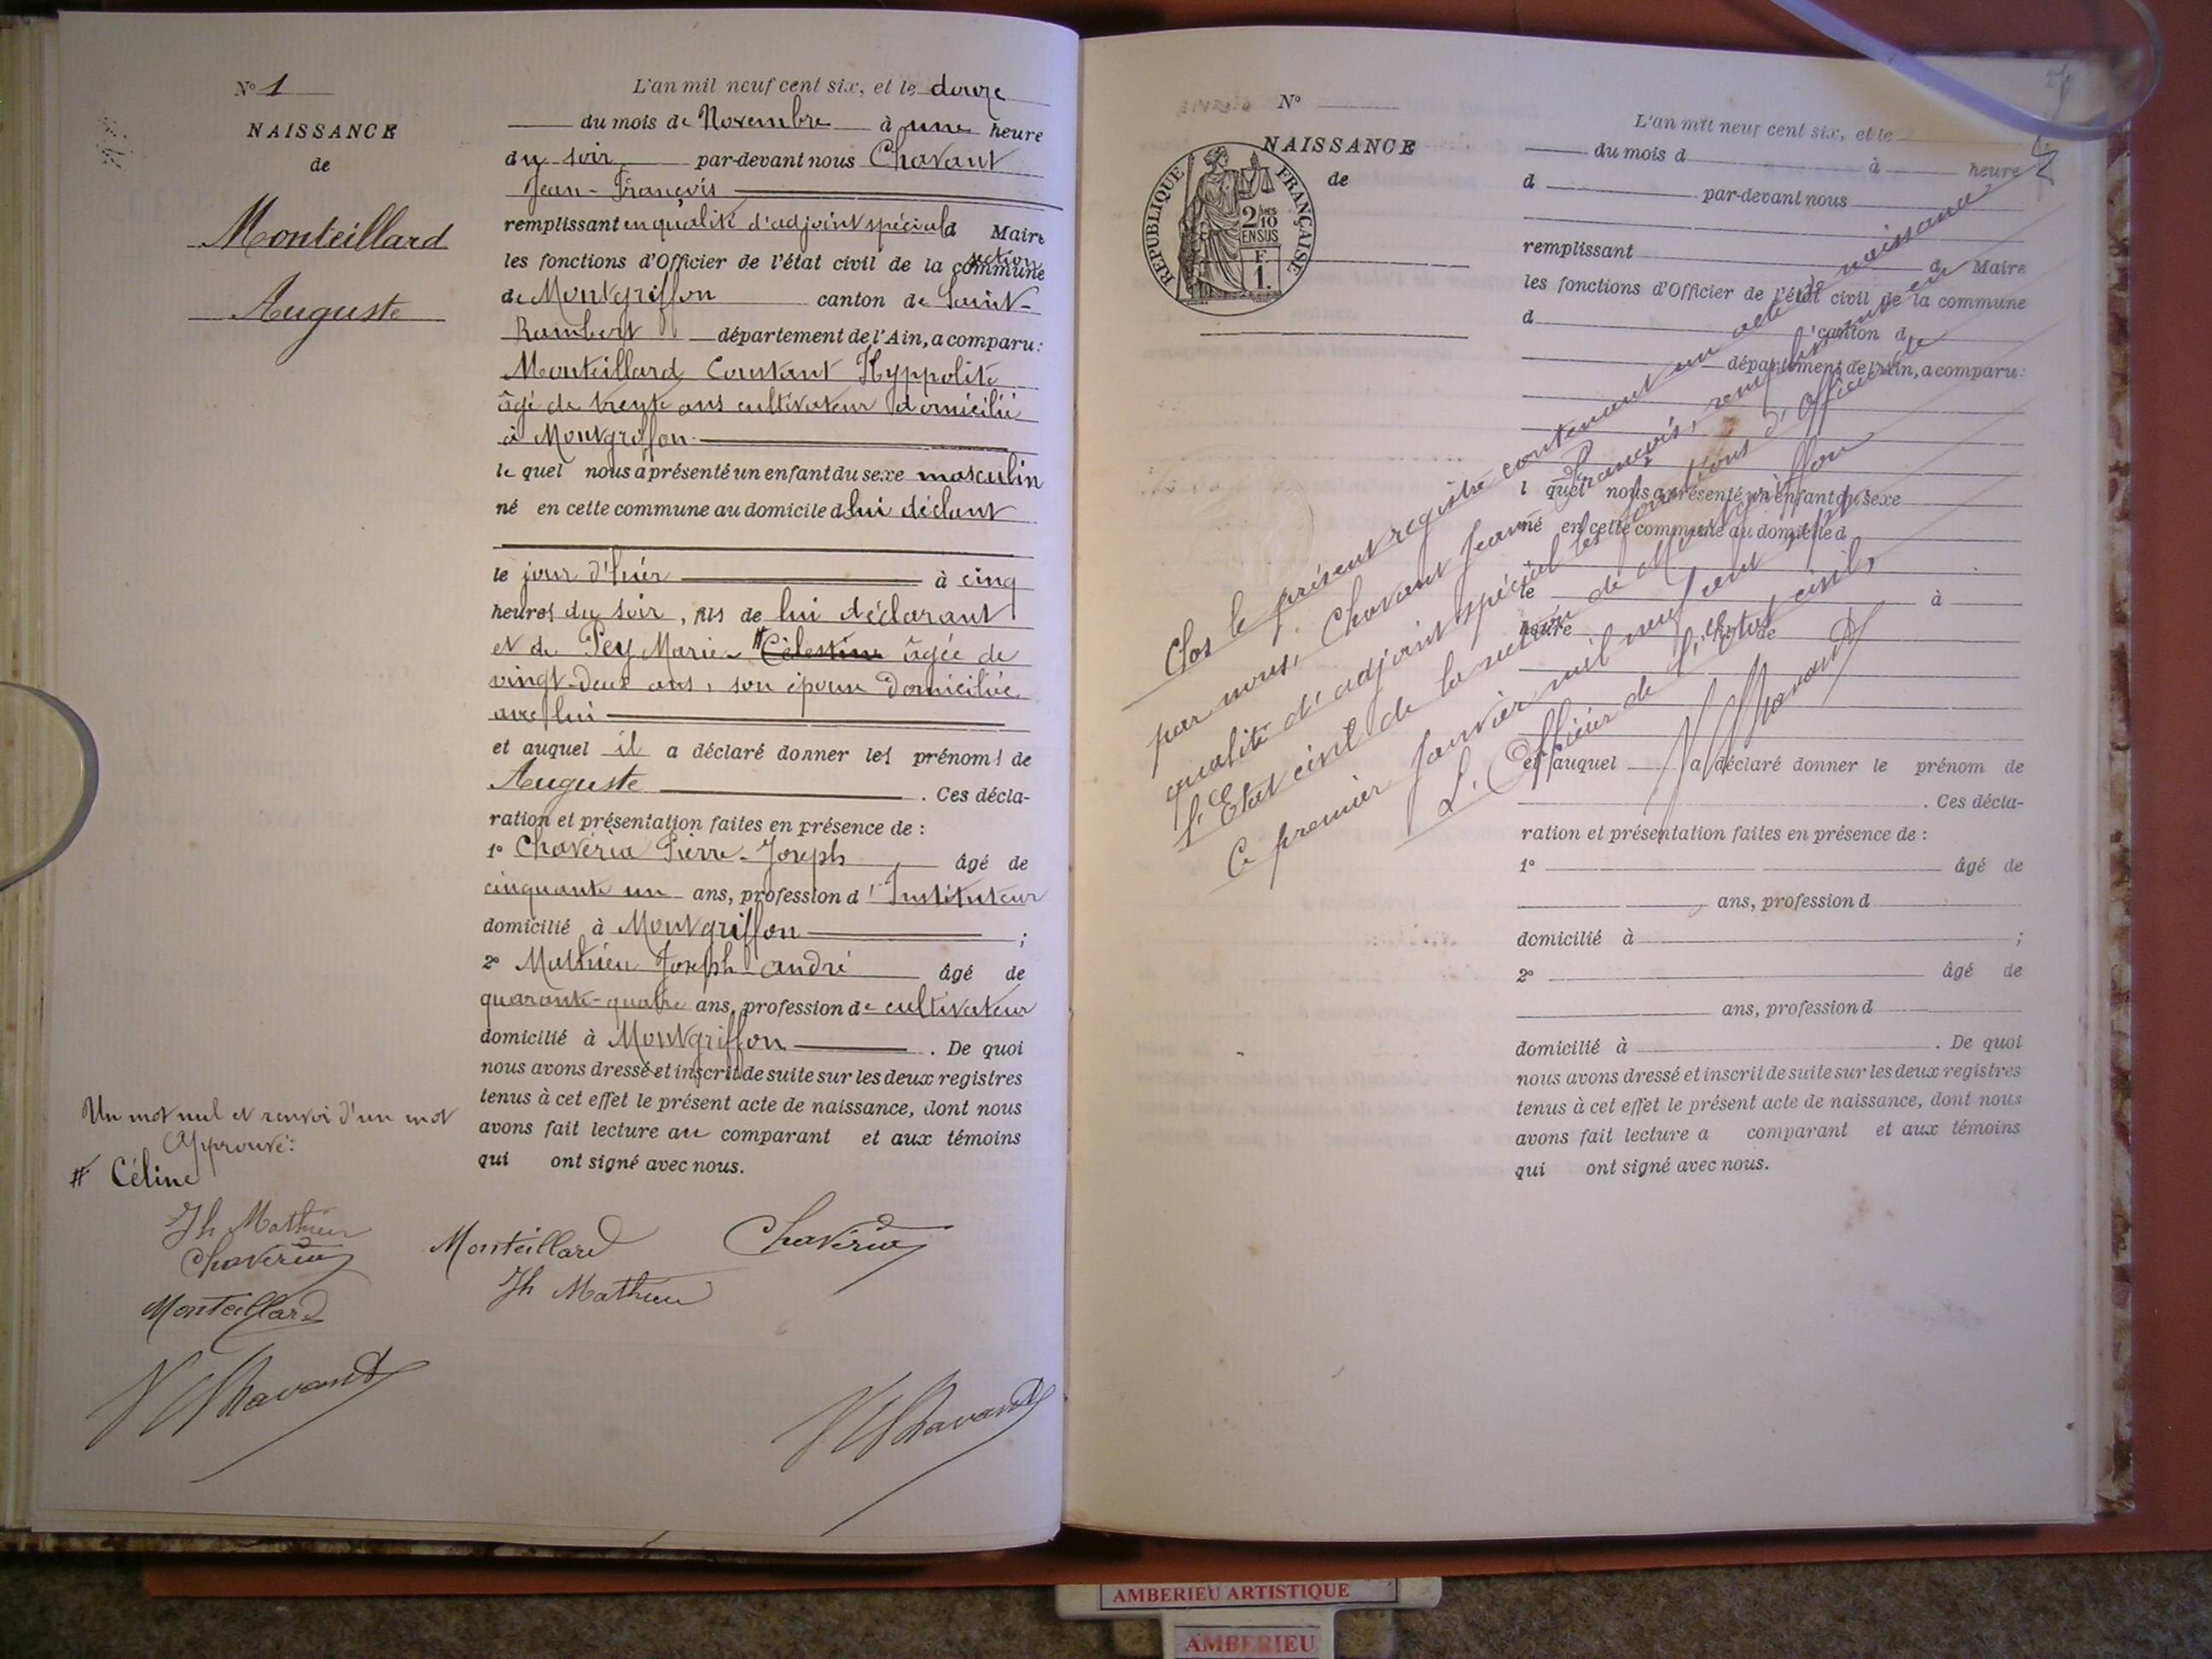 N° 1
NAISSANCE
de
Monteillard
Auguste
L'an mil neuf cent six, et le douze
du mois de Novembre à une heure
du soir par-devant nous Chavant
Jean-François
remplissant en qualité d'adjoint spécial d Maire
les fonctions d'Officier de l'état civil de la commune section
de Montgriffon canton de Saint-
Rambert département de l'Ain, a comparu:
Monteillard Constant Hyppolite
âgé de trente ans cultivateur domicilié
à Montgriffon
le quel nous a présenté un enfant du sexe masculin
né en cette commune au domicile d lui déclant
le jour d'hier à cinq
heures du soir, fils de lui déclarant
et de Pey Marie # Célestine âgée de
vingt-deux ans, son épouse domiciliée
avec lui
et auquel il a déclaré donner les prénoms de
Auguste . Ces décla-
ration et présentation faites en présence de :
1° Chavéria Pierre-Joseph âgé de
cinquante un ans, profession d'Instituteur
domicilié à Montgriffon ;
2° Mathieu Joseph André âgé de
quarante-quatre ans, profession de cultivateur
domicilié à Montgriffon . De quoi
nous avons dressé et inscrit de suite sur les deux registres
tenus à cet effet le présent acte de naissance, dont nous
avons fait lecture au comparant et aux témoins
qui ont signé avec nous.
Un mot nul et renvoi d'un mot
Approuvé:
# Céline
Jh Mathieu
Chavéria
Monteillard
Chavant
Monteillard Chavéria
Jh Mathieu
Chavant
N°
NAISSANCE
de
REPUBLIQUE FRANÇAISE
2/10
EN SUS
F.
1.
L'an mil neuf cent six, et le
du mois d à heure
d par-devant nous
remplissant d Maire
les fonctions d'Officier de l'état civil de la commune
d canton d
département de l'Ain, a comparu:
l quel nous a présenté un enfant du sexe
né en cette commune au domicile d
le à
heure , de
et auquel a déclaré donner le prénom de
. Ces décla-
ration et présentation faites en présence de :
1° âgé de
ans, profession d
domicilié à ;
2° âgé de
ans, profession d
domicilié à . De quoi
nous avons dressé et inscrit de suite sur les deux registres
tenus à cet effet le présent acte de naissance, dont nous
avons fait lecture a comparant et aux témoins
qui ont signé avec nous.
Clos le présent registre contenant un acte de naissance
par nous, Chavant Jean François, remplissant en
qualité d'adjoint spécial les fonctions d'Officier de
l'Etat civil de la section de Montgriffon
Ce premier Janvier mil neuf cent sept
L'Officier de l'Etat civil,
Chavant
AMBERIEU ARTISTIQUE
AMBERIEU